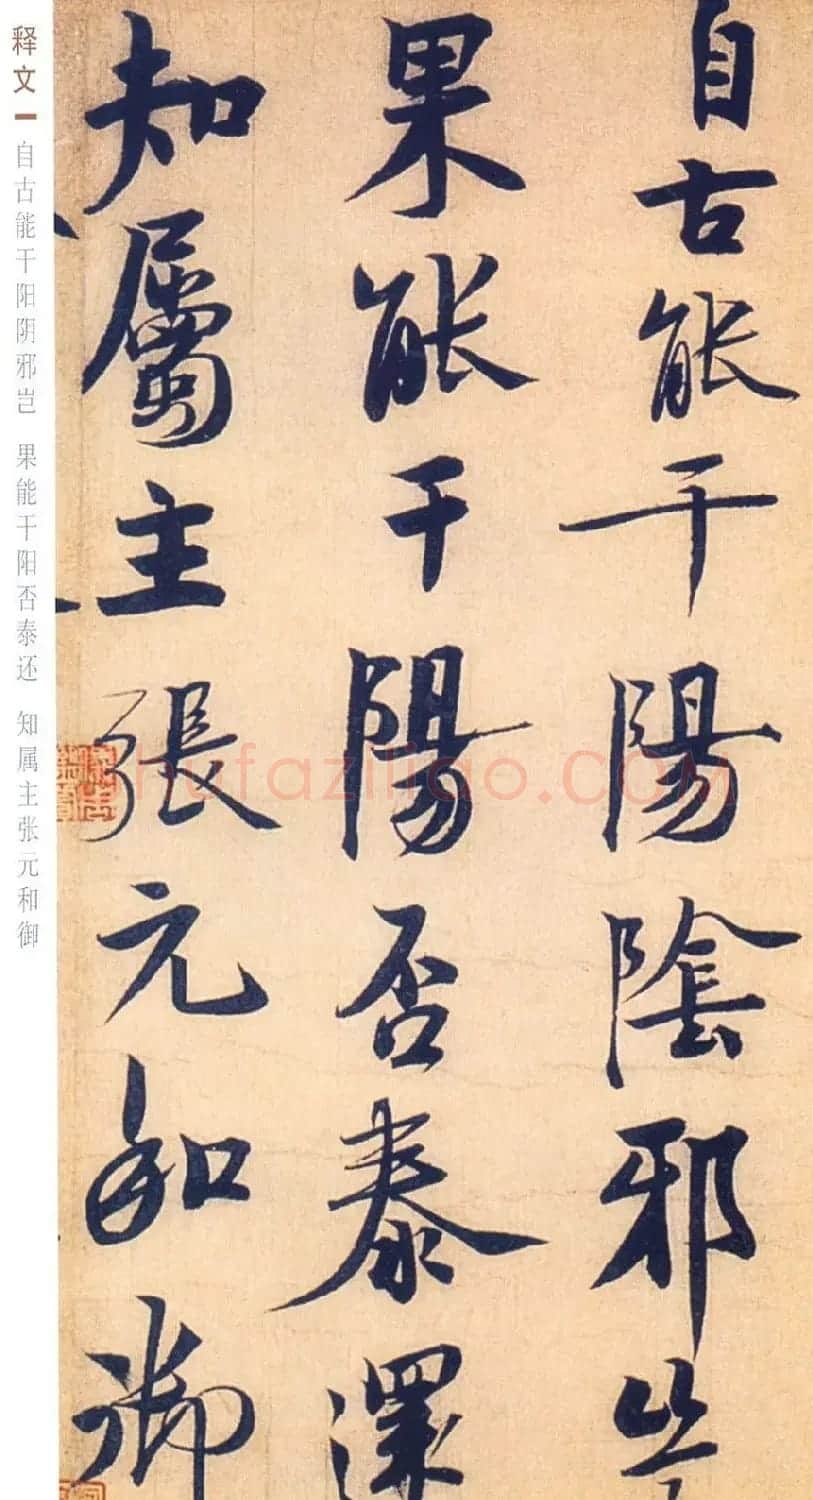 自古能干陽陰邪
果能干陽否泰還
知屬主張元和御
释文
自古能干阳阴邪岂 果能干阳否泰还 知属主张元和御
shufaziliao.COM